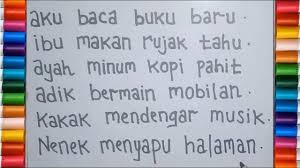 aku baca buku baru.
ibu makan rujak tahu.
ayah minum kopi pahit
adik bermain mobilan.
Kakak mendengar musik.
Nenek menyapu halaman.